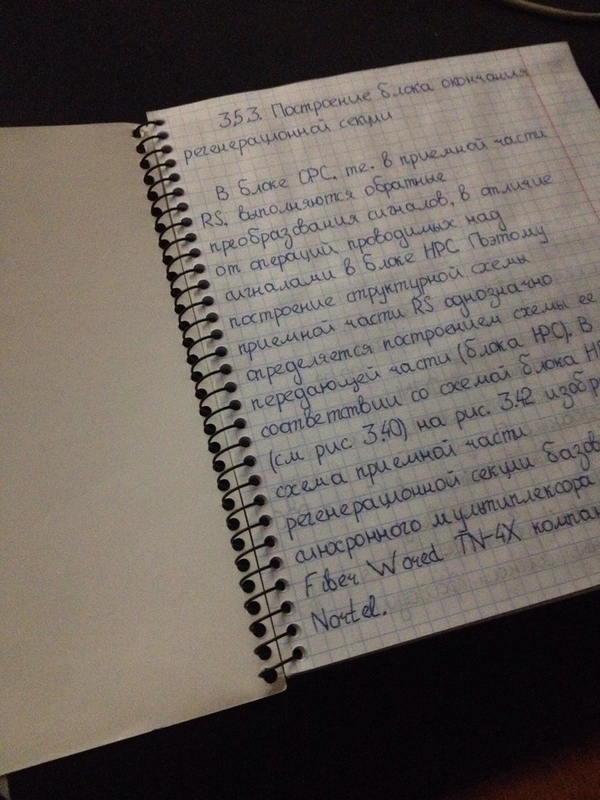 3.5.3. Построение блока окончания
регенерационной секции
В блоке ОРС, т.е. в приемной части
RS, выполняются обратные
преобразования сигналов, в отличие
от операций проводимых над
сигналами в блоке НРС. Поэтому
построение структурной схемы
приемной части RS однозначно
определяется построением схемы ее
передающей части (блока НРС). В
соответствии со схемой блока НР
(см рис 3.40) на рис. 3.42 изобр
схема приемной части
регенерационной секции базов
синхронного мультиплексора
Fiber Wored TN-4X компан
Nortel.